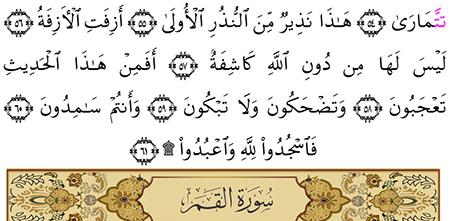 تَتَمَارَىٰ ﴿٥٤﴾ هَـٰذَا نَذِيرٌ مِّنَ النُّذُرِ الْأُولَىٰ ﴿٥٥﴾ أَزِفَتِ الْآزِفَةُ ﴿٥٦﴾
لَيْسَ لَهَا مِن دُونِ اللَّهِ كَاشِفَةٌ ﴿٥٧﴾ أَفَمِنْ هَـٰذَا الْحَدِيثِ
تَعْجَبُونَ ﴿٥٨﴾ وَتَضْحَكُونَ وَلَا تَبْكُونَ ﴿٥٩﴾ وَأَنتُمْ سَـٰمِدُونَ ﴿٦٠﴾
فَٱسْجُدُوا۟ لِلَّهِ وَٱعْبُدُوا۟ ۩ ﴿٦١﴾
سُورَةُ القَمَر